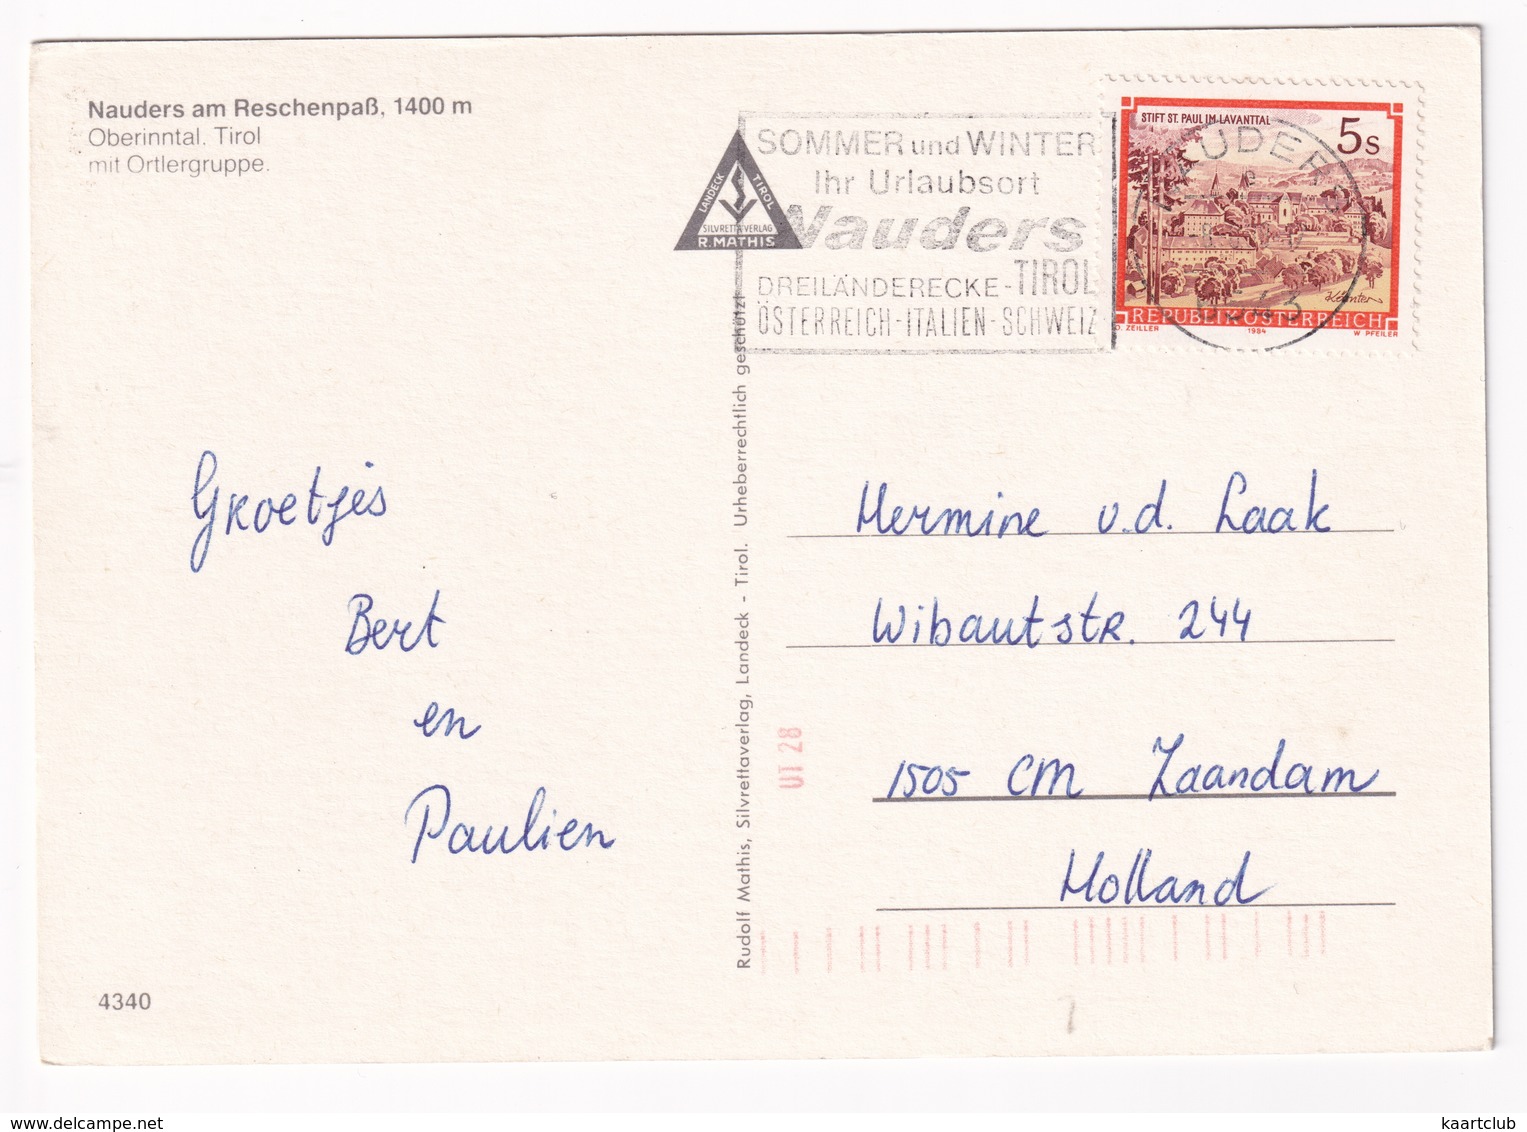 Nauders am Reschenpaß, 1400 m
Oberinntal. Tirol
mit Ortlergruppe.
SOMMER und WINTER
Ihr Urlaubsort
Nauders
TIROL
DREILÄNDERECKE -
ÖSTERREICH - ITALIEN - SCHWEIZ
LANDECK TIROL
SILVRETTAVERLAG
R. MATHIS
STIFT ST. PAUL IM LAVANTTAL
5s
NAUDERS
6543
Kärnten
REPUBLIK ÖSTERREICH
O. ZEILLER 1984 W. PFEILER
Groetjes
Bert
en
Paulien
4340
Rudolf Mathis, Silvrettaverlag, Landeck - Tirol. Urheberrechtlich geschützt
UT 28
Hermine v.d. Laak
Wibautstr. 244
1505 CM Zaandam
Holland
delcampe.net
kaartclub